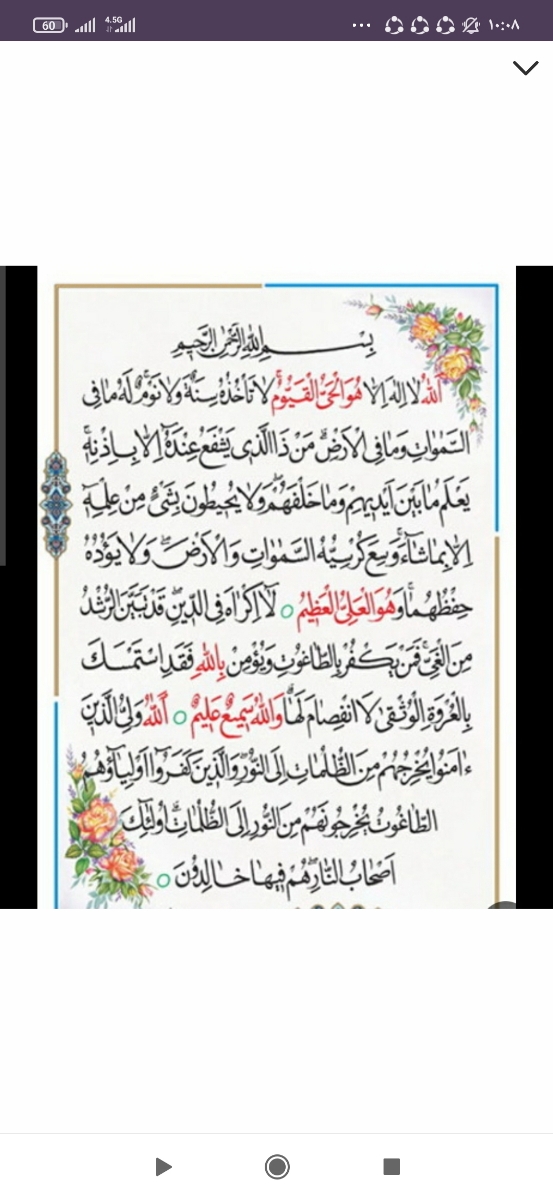 60 4.5G ١٠:٠٨
بِسْمِ اللهِ الرَّحْمٰنِ الرَّحِيمِ
اَللهُ لَا اِلٰهَ اِلَّا هُوَ الْحَىُّ الْقَيُّومُ لَا تَأْخُذُهُ سِنَةٌ وَلَا نَوْمٌ لَهُ مَا فِى
السَّمٰوَاتِ وَمَا فِى الْاَرْضِ مَنْ ذَا الَّذِى يَشْفَعُ عِنْدَهُ اِلَّا بِاِذْنِهِ
يَعْلَمُ مَا بَيْنَ اَيْدِيهِمْ وَمَا خَلْفَهُمْ وَلَا يُحِيطُونَ بِشَىْءٍ مِنْ عِلْمِهِ
اِلَّا بِمَا شَاءَ وَسِعَ كُرْسِيُّهُ السَّمٰوَاتِ وَالْاَرْضَ وَلَا يَؤُدُهُ
حِفْظُهُمَا وَهُوَ الْعَلِىُّ الْعَظِيمُ ○ لَا اِكْرَاهَ فِى الدِّينِ قَدْ تَبَيَّنَ الرُّشْدُ
مِنَ الْغَىِّ فَمَنْ يَكْفُرْ بِالطَّاغُوتِ وَيُؤْمِنْ بِاللهِ فَقَدِ اسْتَمْسَكَ
بِالْعُرْوَةِ الْوُثْقٰى لَا انْفِصَامَ لَهَا وَاللهُ سَمِيعٌ عَلِيمٌ ○ اَللهُ وَلِىُّ الَّذِينَ
ءَامَنُوا يُخْرِجُهُمْ مِنَ الظُّلُمَاتِ اِلَى النُّورِ وَالَّذِينَ كَفَرُوا اَوْلِيَاؤُهُمُ
الطَّاغُوتُ يُخْرِجُونَهُمْ مِنَ النُّورِ اِلَى الظُّلُمَاتِ اُولٰئِكَ
اَصْحَابُ النَّارِ هُمْ فِيهَا خَالِدُونَ ○